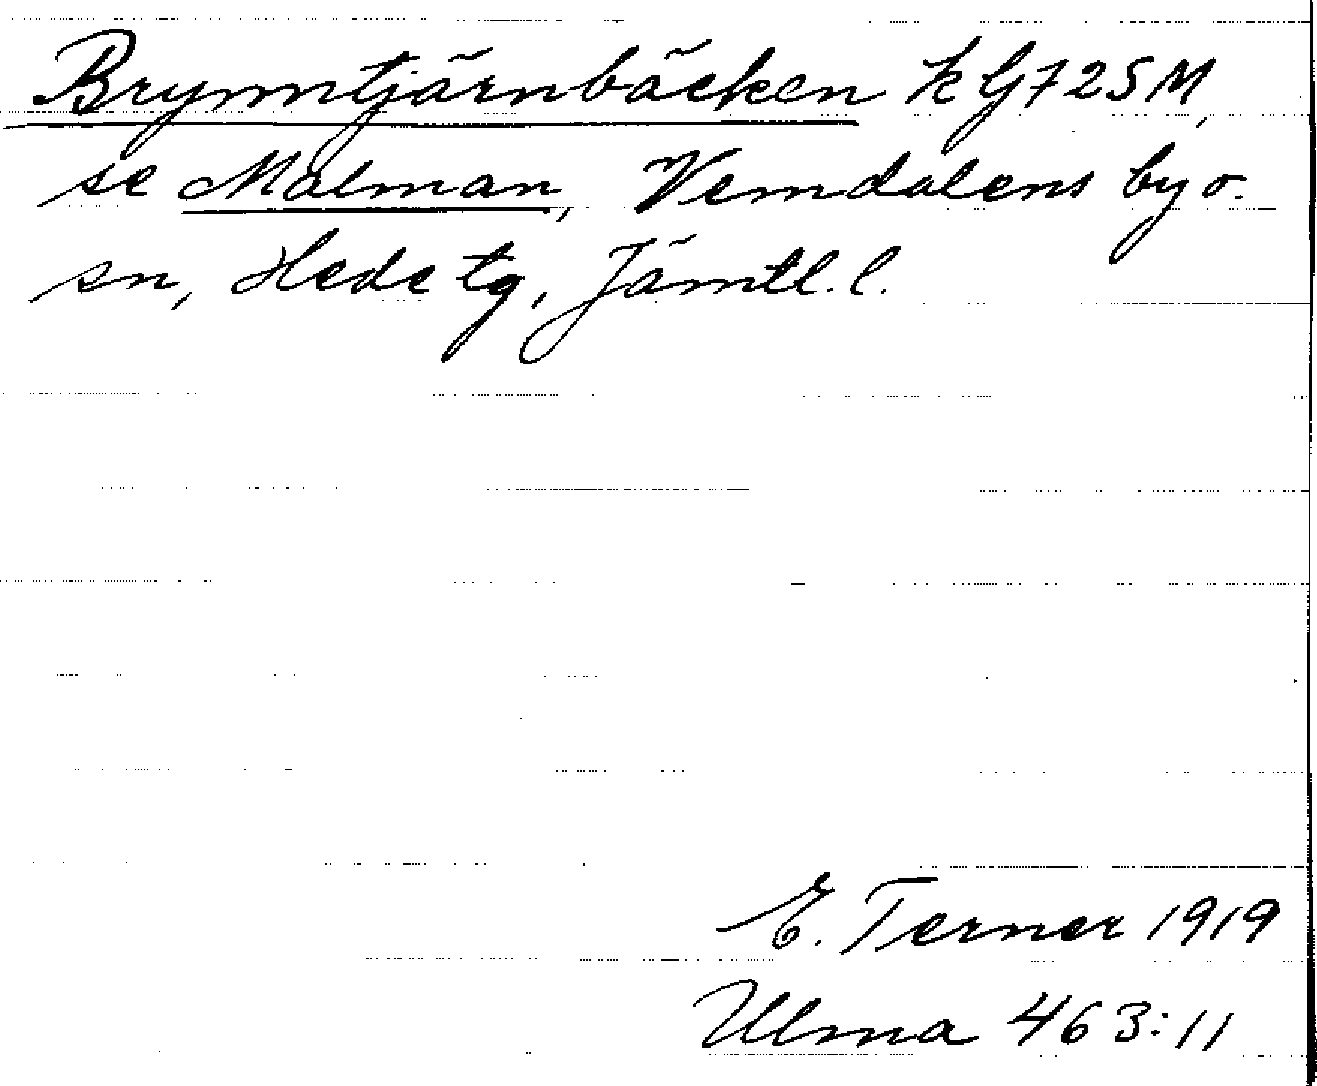 Brynntjärnbäcken k G725M,
se Malman, Vemdalens by o.
sn, Hede tg, Jämtl. l.
E. Terner 1919
Ulma 463:11